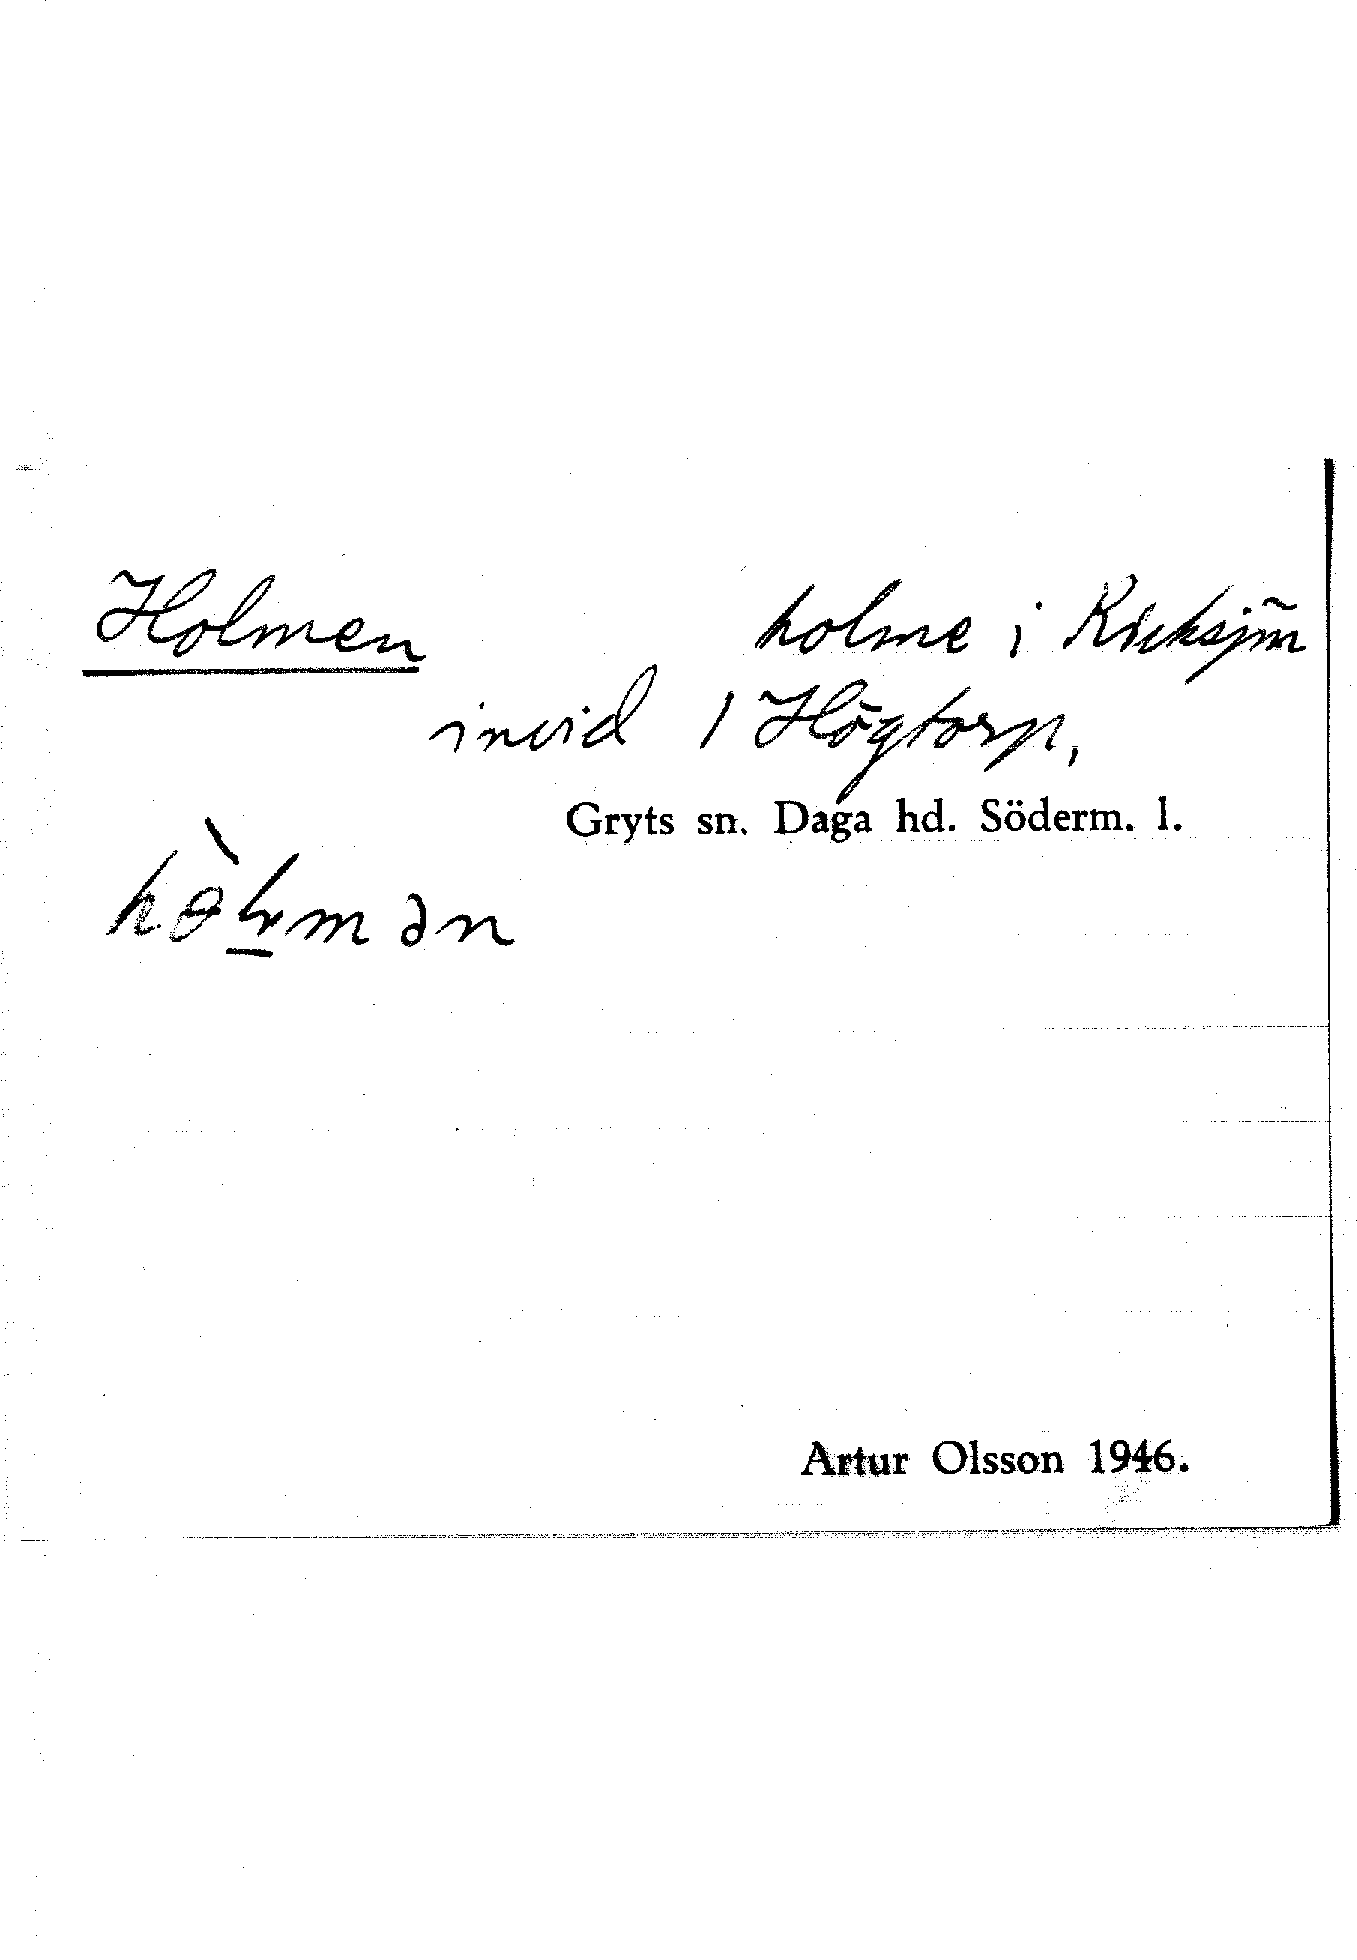 Holmen holme i
invid 1 Högtorp,
Gryts sn. Daga hd. Söderm. l.
Artur Olsson 1946.